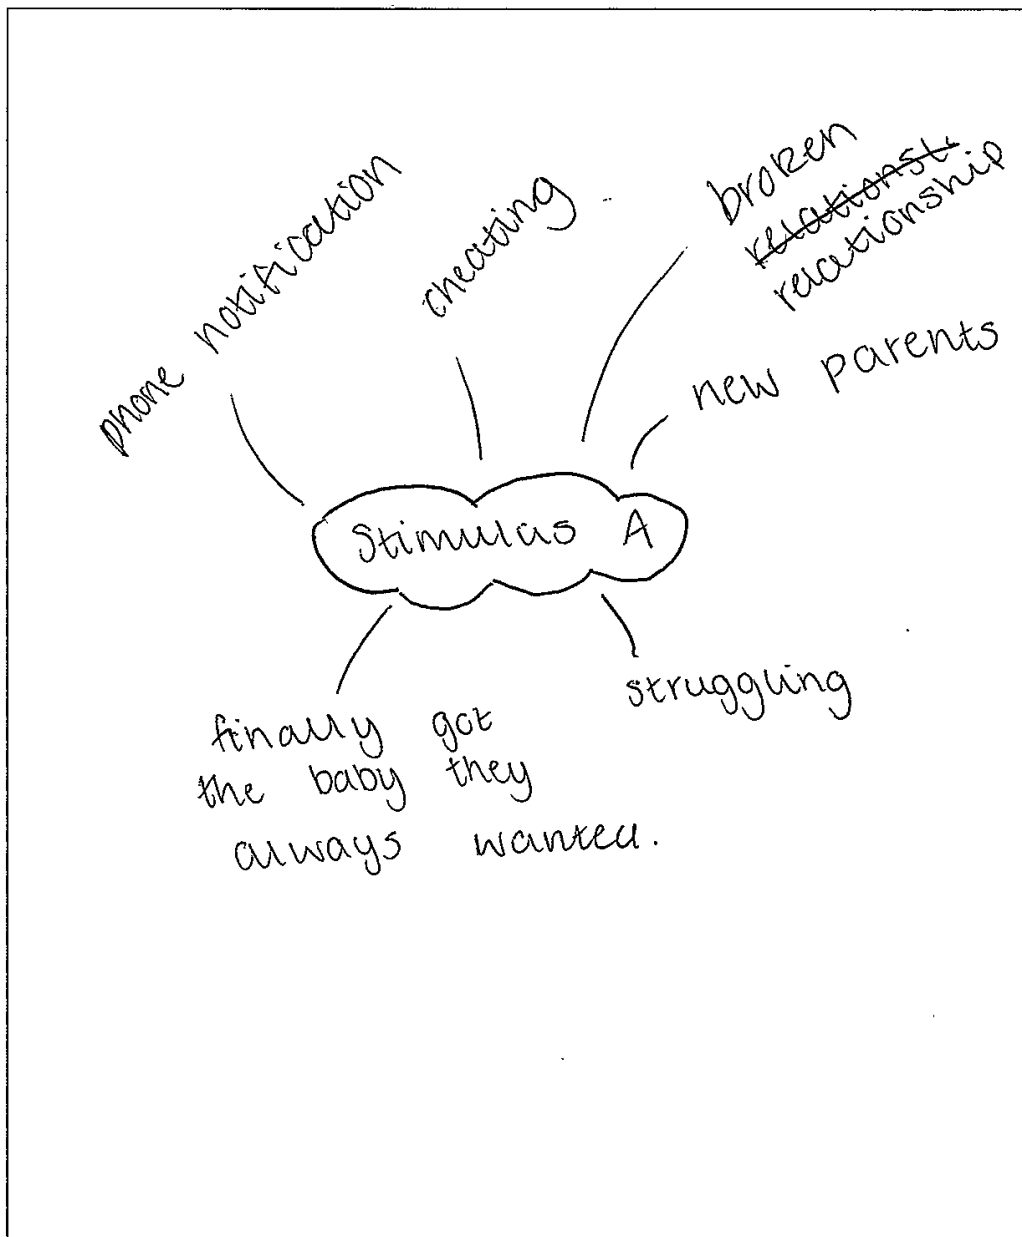 phone notification
cheating
broken
relationst.
relationship
new parents
Stimulus A
finally got
the baby they
always wanted.
struggling